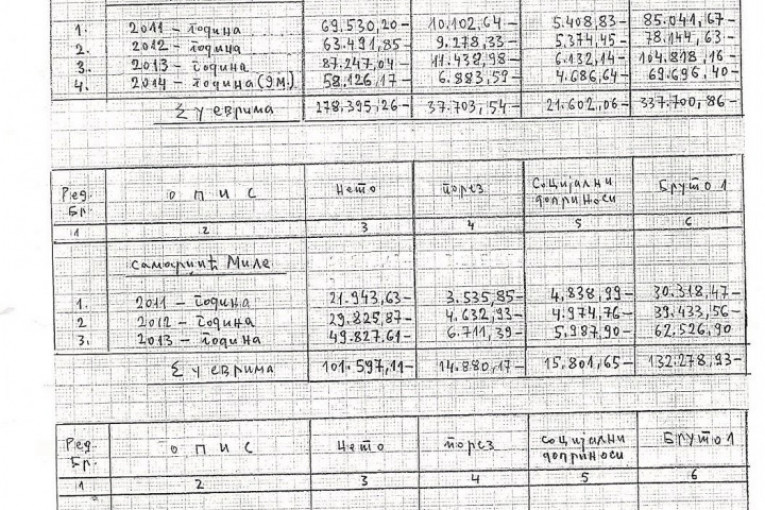 1. 2011 – година 69.530,20– 10.102,64– 5.408,83– 85.041,67–
2. 2012 – година 63.491,85– 9.278,33– 5.374,45– 78.144,63–
3. 2013 – година 87.247,04– 11.438,98– 6.132,14– 104.818,16–
4. 2014 – година (9м.) 58.126,17– 6.883,59– 4.686,64– 69.696,40–
Σ у еврима 278.395,26– 37.703,54– 21.602,06– 337.700,86–
Ред. Бр. О П И С Нето порез Социјални доприноси Бруто 1
1 2 3 4 5 6
Самарџић Миле
1. 2011 – година 21.943,63– 3.535,85– 4.838,99– 30.318,47–
2 2012 – година 29.825,87– 4.632,93– 4.974,76– 39.433,56–
3. 2013 – година 49.827,61– 6.711,39– 5.987,90– 62.526,90
Σ у еврима 101.597,11– 14.880,17– 15.801,65– 132.278,93–
Ред. Бр. О П И С Нето порез Социјални доприноси Бруто 1
1 2 3 4 5 6